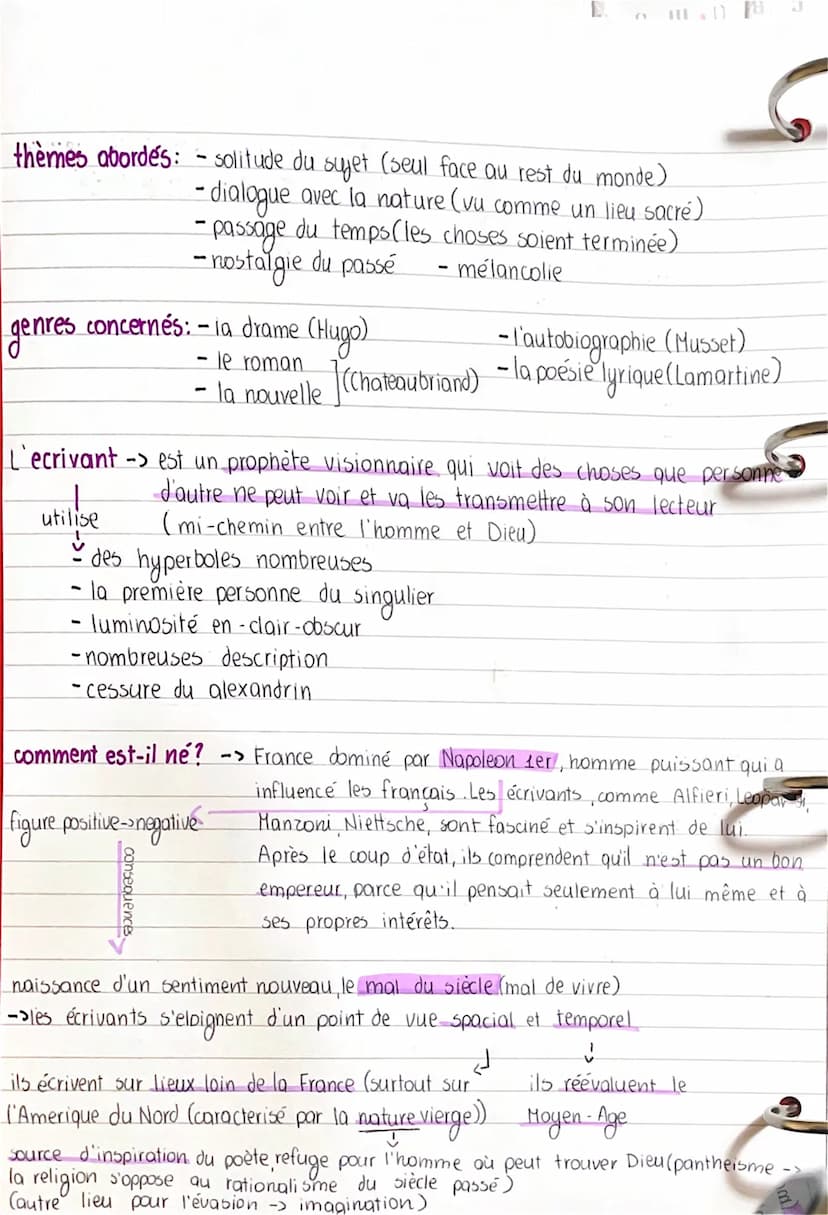 thèmes abordés: - solitude du sujet (seul face au rest du monde)
- dialogue avec la nature (vu comme un lieu sacré)
- passage du temps (les choses soient terminée)
- nostalgie du passé - mélancolie
genres concernés: - la drame (Hugo) - l'autobiographie (Musset)
- le roman
- la nouvelle ] (Chateaubriand) - la poésie lyrique (Lamartine)
L'ecrivant -> est un prophète visionnaire qui voit des choses que personne
d'autre ne peut voir et va les transmettre à son lecteur
utilise (mi-chemin entre l'homme et Dieu)
- des hyperboles nombreuses
- la première personne du singulier
- luminosité en - clair-obscur
- nombreuses description
- cessure du alexandrin
comment est-il né? -> France dominé par Napoleon 1er, homme puissant qui a
influencé les français. Les écrivants, comme Alfieri,
figure positive -> negative Manzoni, Nieltsche, sont fasciné et s'inspirent de lui.
Après le coup d'état, ils comprendent qu'il n'est pas un bon
consequences empereur, parce qu'il pensait seulement à lui même et à
ses propres intérêts.
naissance d'un sentiment nouveau, le mal du siècle (mal de vivre)
-> les écrivants s'eloignent d'un point de vue spacial et temporel
ils écrivent sur lieux loin de la France (surtout sur ils réévaluent le
l'Amerique du Nord (caracterisé par la nature vierge)) Moyen-Age
source d'inspiration du poète, refuge pour l'homme où peut trouver Dieu (pantheisme ->
la religion s'oppose au rationalisme du siècle passé)
(autre lieu pour l'évasion -> imagination)